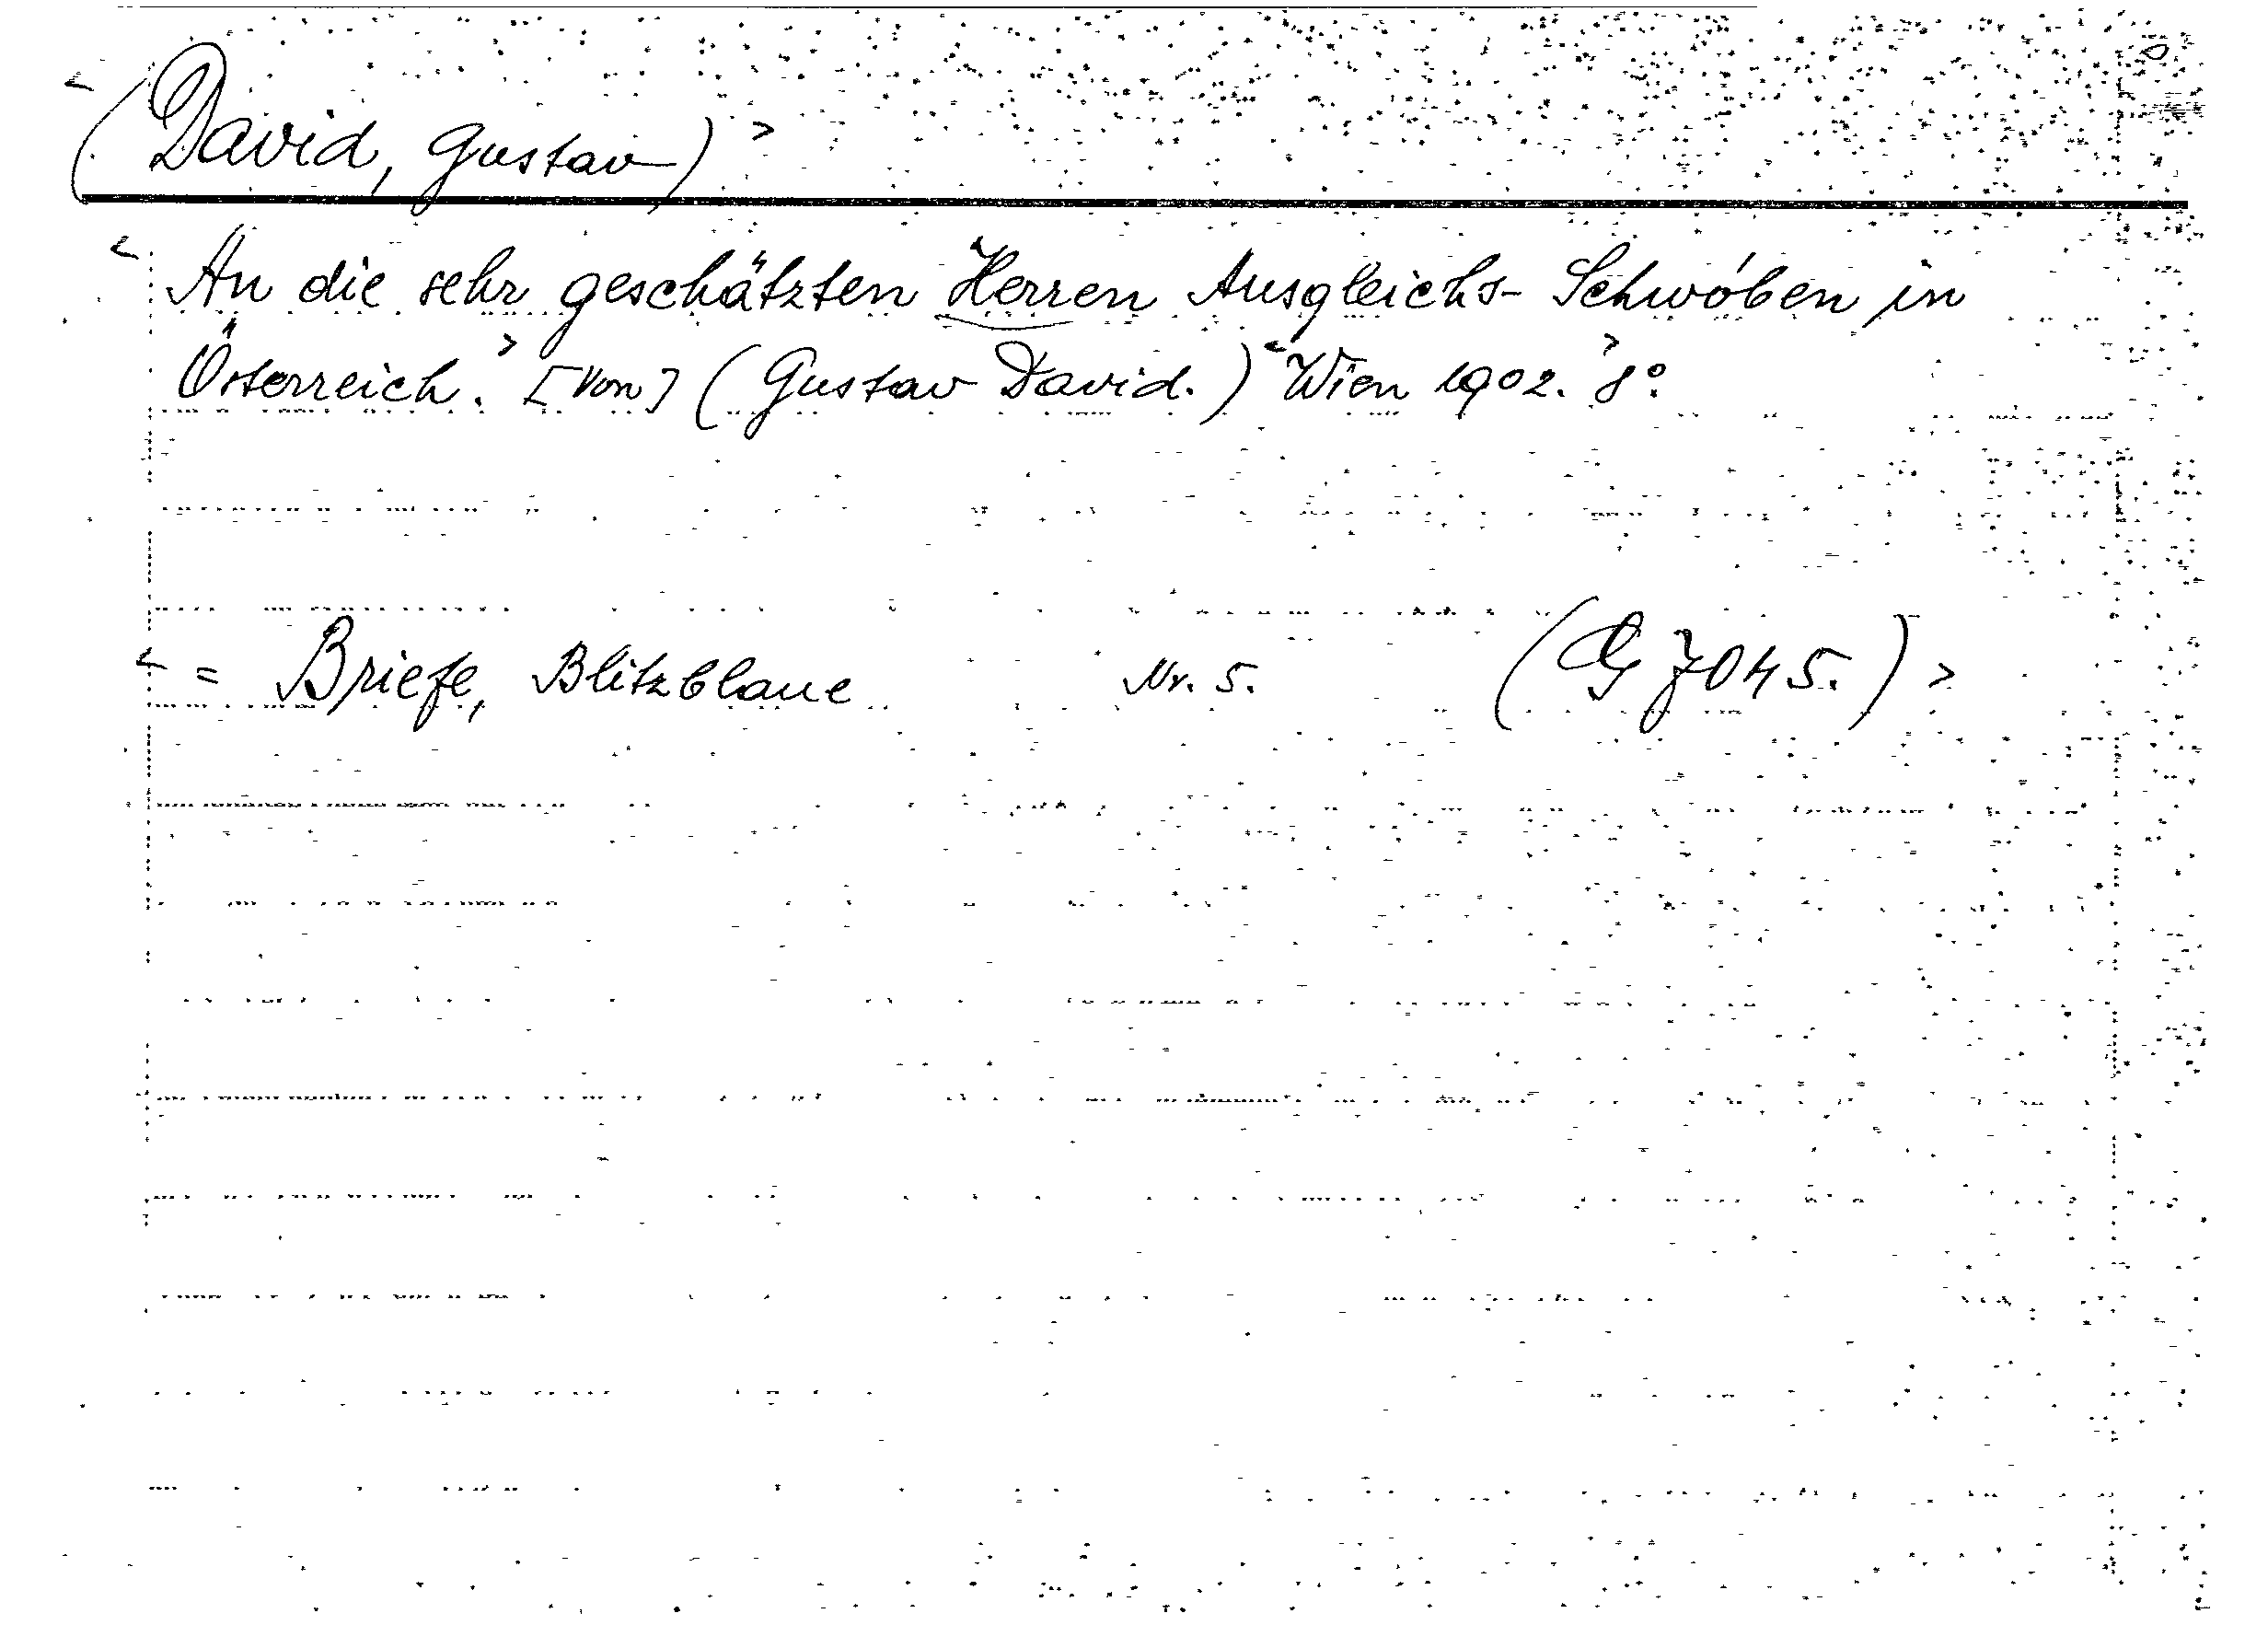 <(David, Gustav)>
<An die sehr geschätzten Herren Ausgleichs-Schwóben in
Österreich.> [Von] (Gustav David.) <Wien 1902.> 8°.
<= Briefe, Blitzblaue Nr. 5. (G 7045.)>